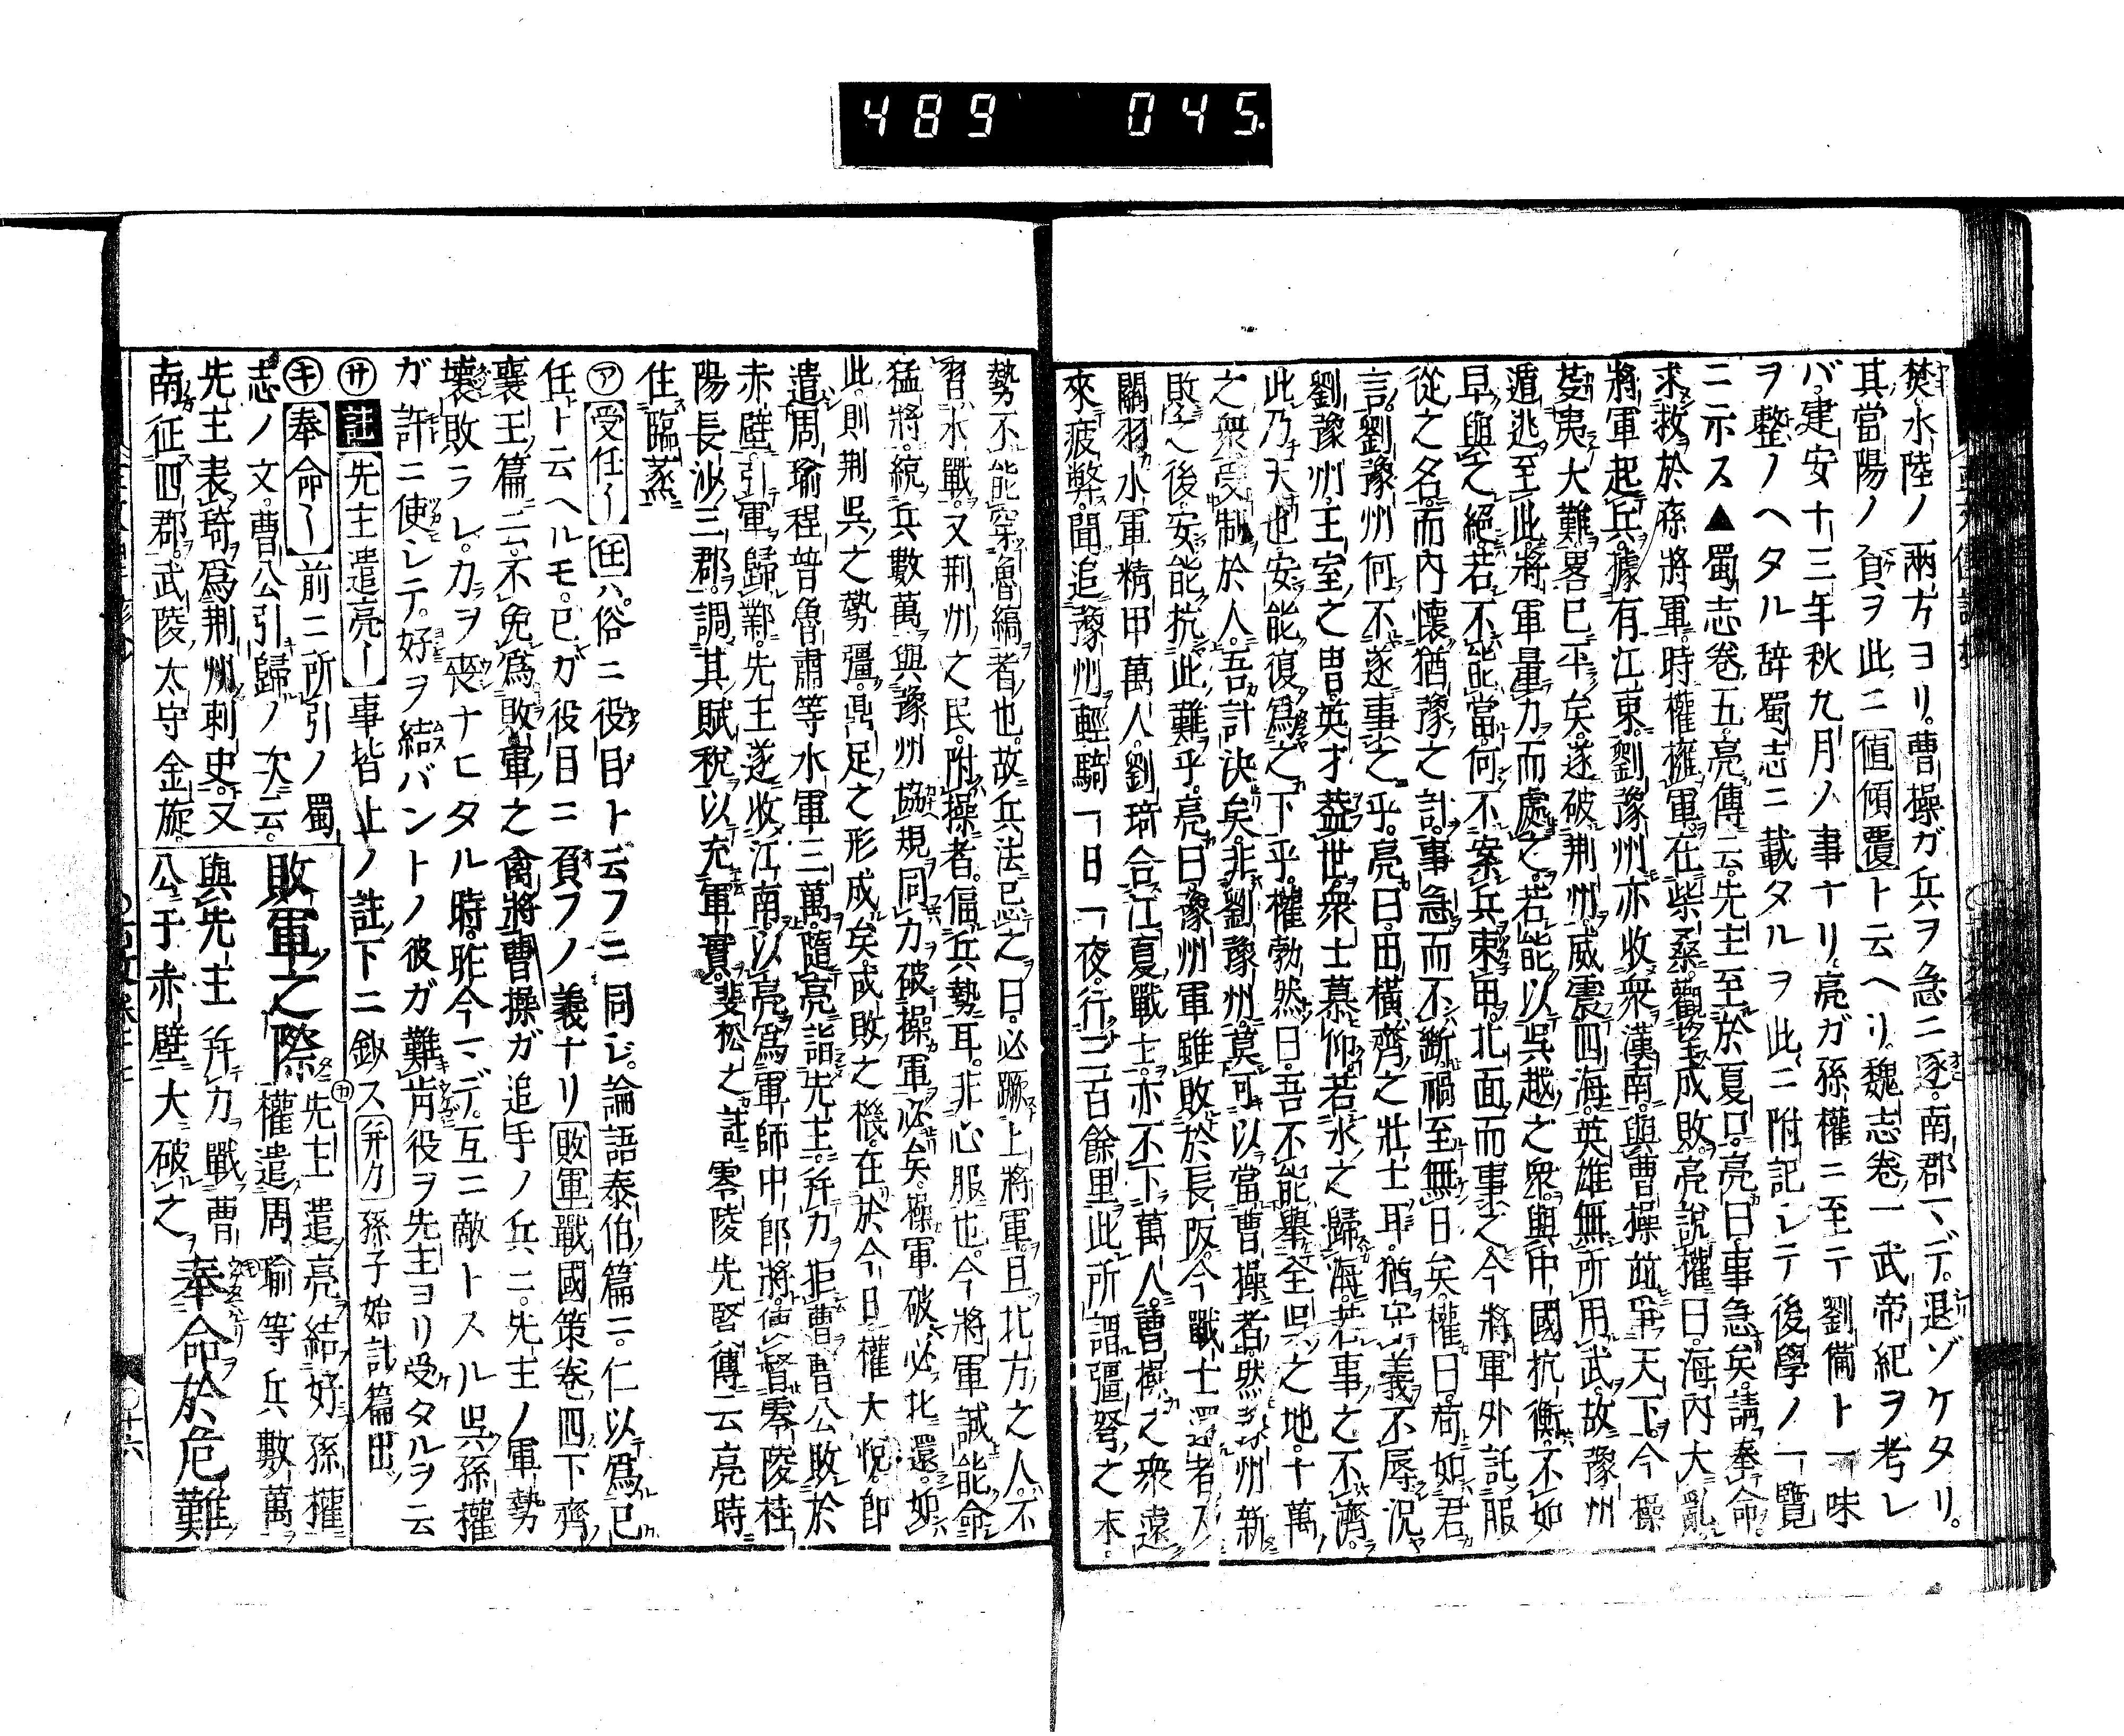 489 045.
樊水陸ノ兩方ヨリ。曹操ガ兵ヲ急ニ逐。南郡マデ。退ゾケタリ。
其當陽ノ負ヲ此ニ値傾覆ト云ヘリ。魏志卷一武帝紀ヲ考レ
バ。建安十三年秋九月ノ事ナリ。亮ガ孫權ニ至テ劉備ト一味
ヲ整ノヘタル辞蜀志ニ載タルヲ此ニ附記シテ後學ノ一覽
ニ示ス▲蜀志卷五。亮傳云。先主至於夏口。亮曰。事急矣。請奉命。
求救於孫將軍。時權擁軍。在柴桑。觀望成敗。亮說權曰。海內大亂。
將軍起兵。據有江東。劉豫州亦收衆漢南。與曹操並爭天下。今操
芟夷大難。畧已平矣。遂破荆州。威震四海。英雄無所用武。故豫州
遁逃至此。將軍量力而處之。若能以吳越之衆。與中國抗衡。不如
早與之絕。若不能當。何不案兵束甲。北面而事之。今將軍外託服
從之名。而內懷猶豫之計。事急而不斷。禍至無日矣。權曰。苟如君
言。劉豫州何不遂事之乎。亮曰。田橫齊之壯士耳。猶守義不辱。況
劉豫州。王室之冑。英才蓋世。衆士慕仰。若水之歸海。若事之不濟。
此乃天也。安能復爲之下乎。權勃然曰。吾不能擧全吳之地。十萬
之衆。受制於人。吾計決矣。非劉豫州。莫可以當曹操者。然豫州新
敗之後。安能抗此難乎。亮曰。豫州軍雖敗於長阪。今戰士還者及
關羽水軍精甲萬人。劉琦合江夏戰士。亦不下萬人。曹操之衆。遠
來疲弊。聞追豫州。輕騎一日一夜。行三百餘里。此所謂彊弩之末。
勢不能穿魯縞者也。故兵法忌之曰。必蹶上將軍。且北方之人。不
習水戰。又荆州之民。附操者。偪兵勢耳。非心服也。今將軍誠能命
猛將。統兵數萬。與豫州協規同力。破操軍必矣。操軍破。必北還。如
此。則荆吳之勢彊。鼎足之形成矣。成敗之機。在於今日。權大悅。卽
遣周瑜程普魯肅等水軍三萬。隨亮詣先主。幷力拒曹。曹公敗於
赤壁。引軍歸鄴。先主遂收江南。以亮爲軍師中郎將。使督零陵桂
陽長沙三郡。調其賦稅。以充軍實。裴松之註零陵先賢傳云。亮時
住臨蒸
㋐受任〱任ハ。俗ニ役目ト云フニ同ジ。論語泰伯篇ニ。仁以爲己
任ト云ヘルモ。己ガ役目ニ負フノ義ナリ敗軍戰國策卷四下齊
襄王篇ニ云。不免爲敗軍之禽將曹操ガ追手ノ兵ニ。先主ノ軍勢
壞敗ラレ。力ヲ喪ナヒタル時。昨今マデ。互ニ敵トスル吳孫權
ガ許ニ使シテ。好ヲ結バントノ彼ガ難肯役ヲ先主ヨリ受タルヲ云
㋚註先主遣亮〱事皆上ノ註下ニ鈔ス幷力孫子始計篇出
㋖奉命〱前ニ所引ノ蜀
志ノ文。曹公引歸ノ次云。
先主表琦爲荆州刺史。又
南征四郡。武陵太守金旋。
敗軍之際㋕先主遣亮結好孫權
權遣周瑜等兵數萬
與先主幷力戰曹
公于赤壁大破之奉命於危難